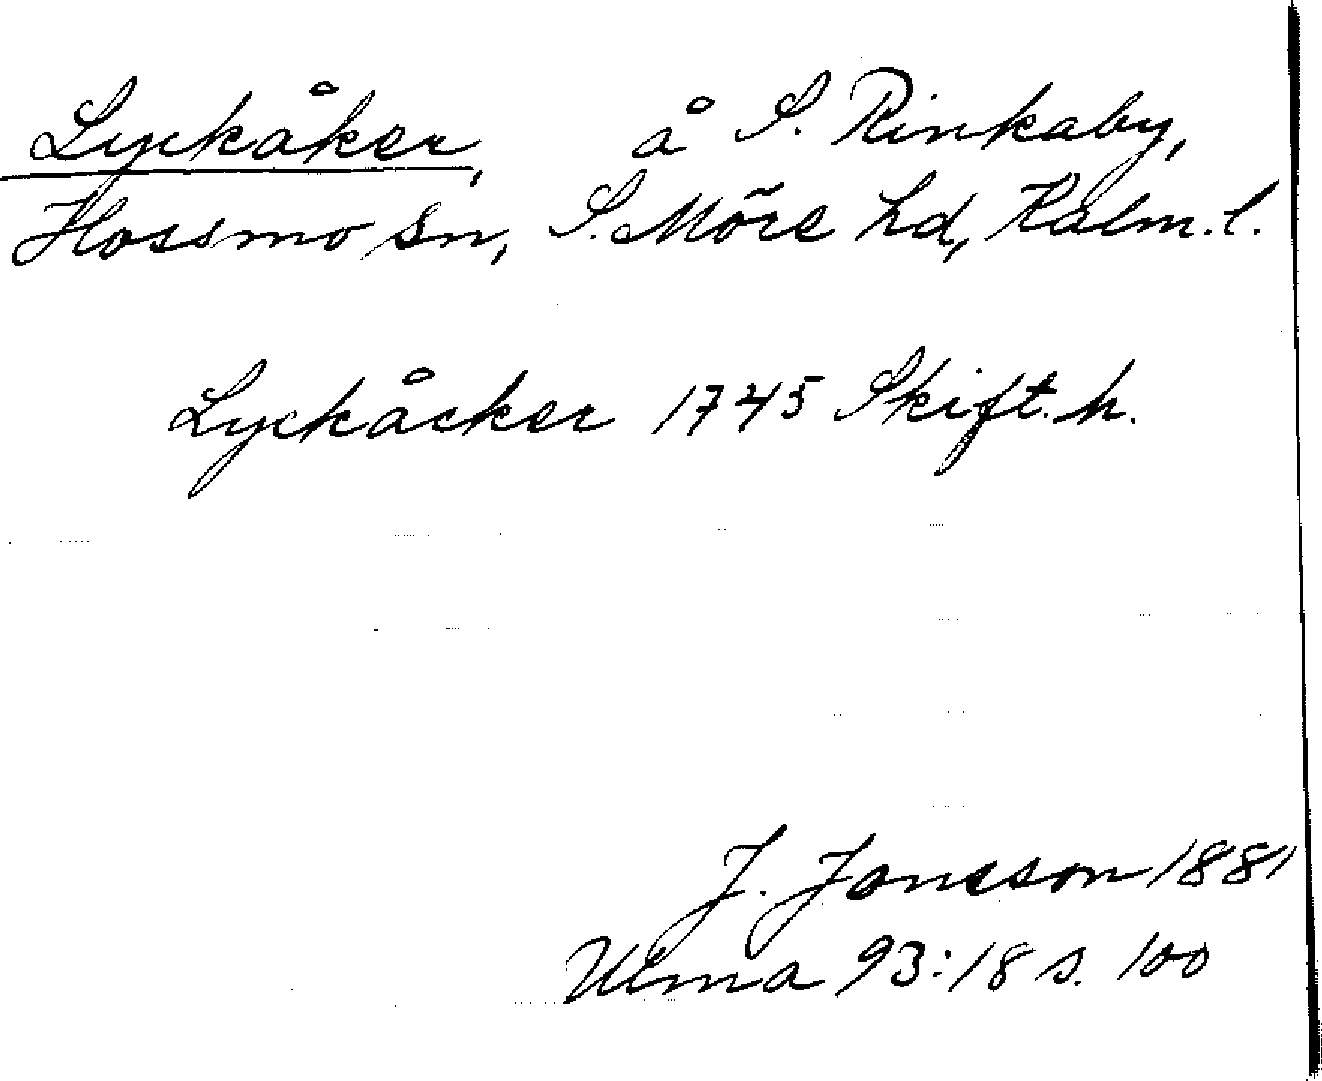 Lyckåker, å S. Rinkaby,
Hossmo sn, S. Möre hd, Kalm. l.
Lyckåcker 1745 Skift. h.
J. Jonsson 1881
Ulma 93:18 s. 100